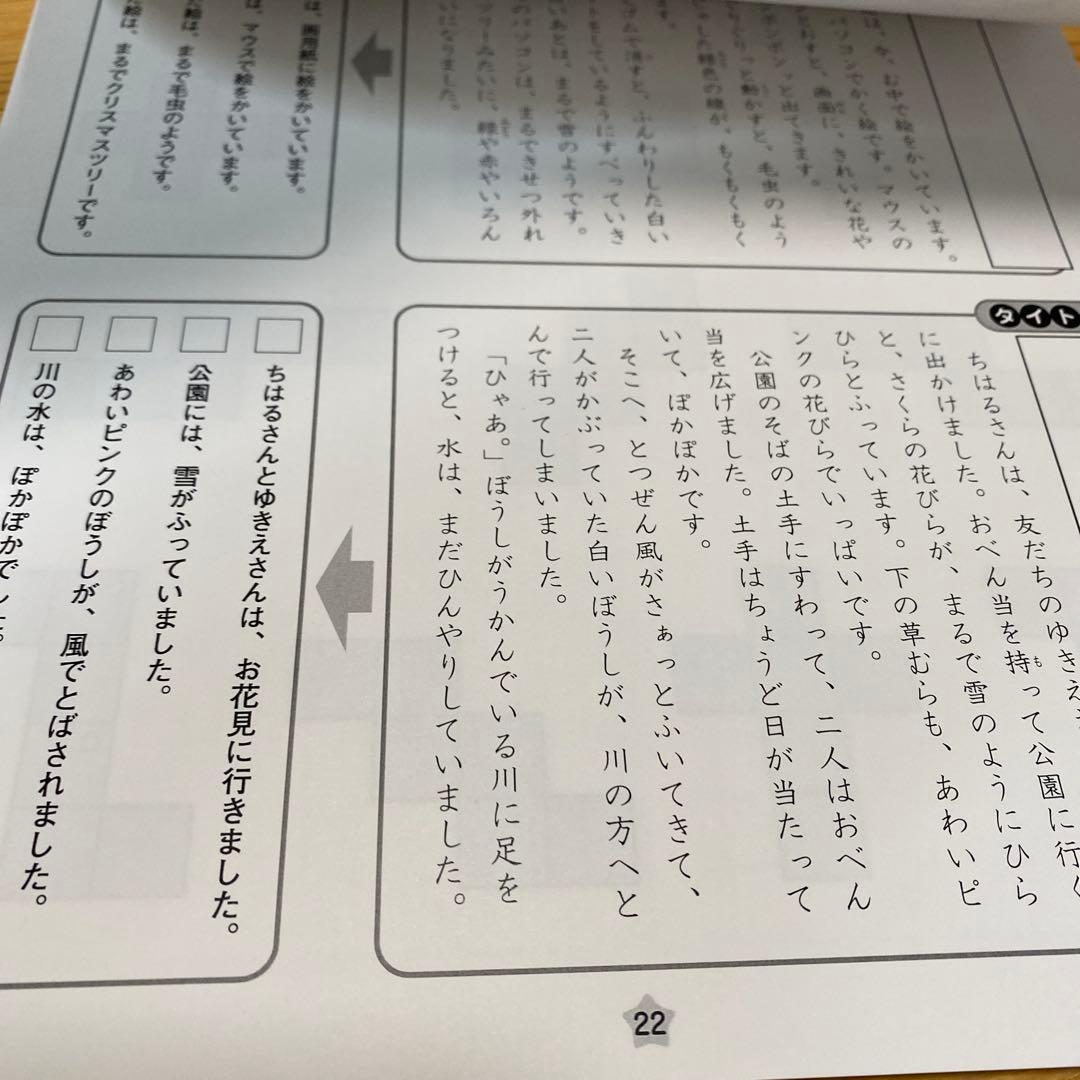 は、今、む中で絵をかいています。
パソコンでかく絵です。マウスの
とおすと、画面に、きれいな花や
ポンポンッと出てきます。
ぐりぐりっと動かすと、毛虫のよう
した緑色の線が、もくもくもく
ます。
ゴムで消すと、ふんわりした白い
をしているようにすべっていき
いあとは、まるで雪のようです。
のパソコンは、まるできせつ外れ
ツリーみたいに、緑や赤やいろん
いになりました。
は、画用紙に絵をかいています。
は、マウスで絵をかいています。
絵は、まるで毛虫のようです。
絵は、まるでクリスマスツリーです。
タイト
ちはるさんは、友だちのゆきえ
に出かけました。おべん当を持って公園に行く
と、さくらの花びらが、まるで雪のようにひら
ひらとふっています。下の草むらも、あわいピ
ンクの花びらでいっぱいです。
公園のそばの土手にすわって、二人はおべん
当を広げました。土手はちょうど日が当たって
いて、ぽかぽかです。
そこへ、とつぜん風がさぁっとふいてきて、
二人がかぶっていた白いぼうしが、川の方へと
んで行ってしまいました。
「ひゃあ。」ぼうしがうかんでいる川に足を
つけると、水は、まだひんやりしていました。
ちはるさんとゆきえさんは、お花見に行きました。
公園には、雪がふっていました。
あわいピンクのぼうしが、風でとばされました。
川の水は、ぽかぽかでした。
22